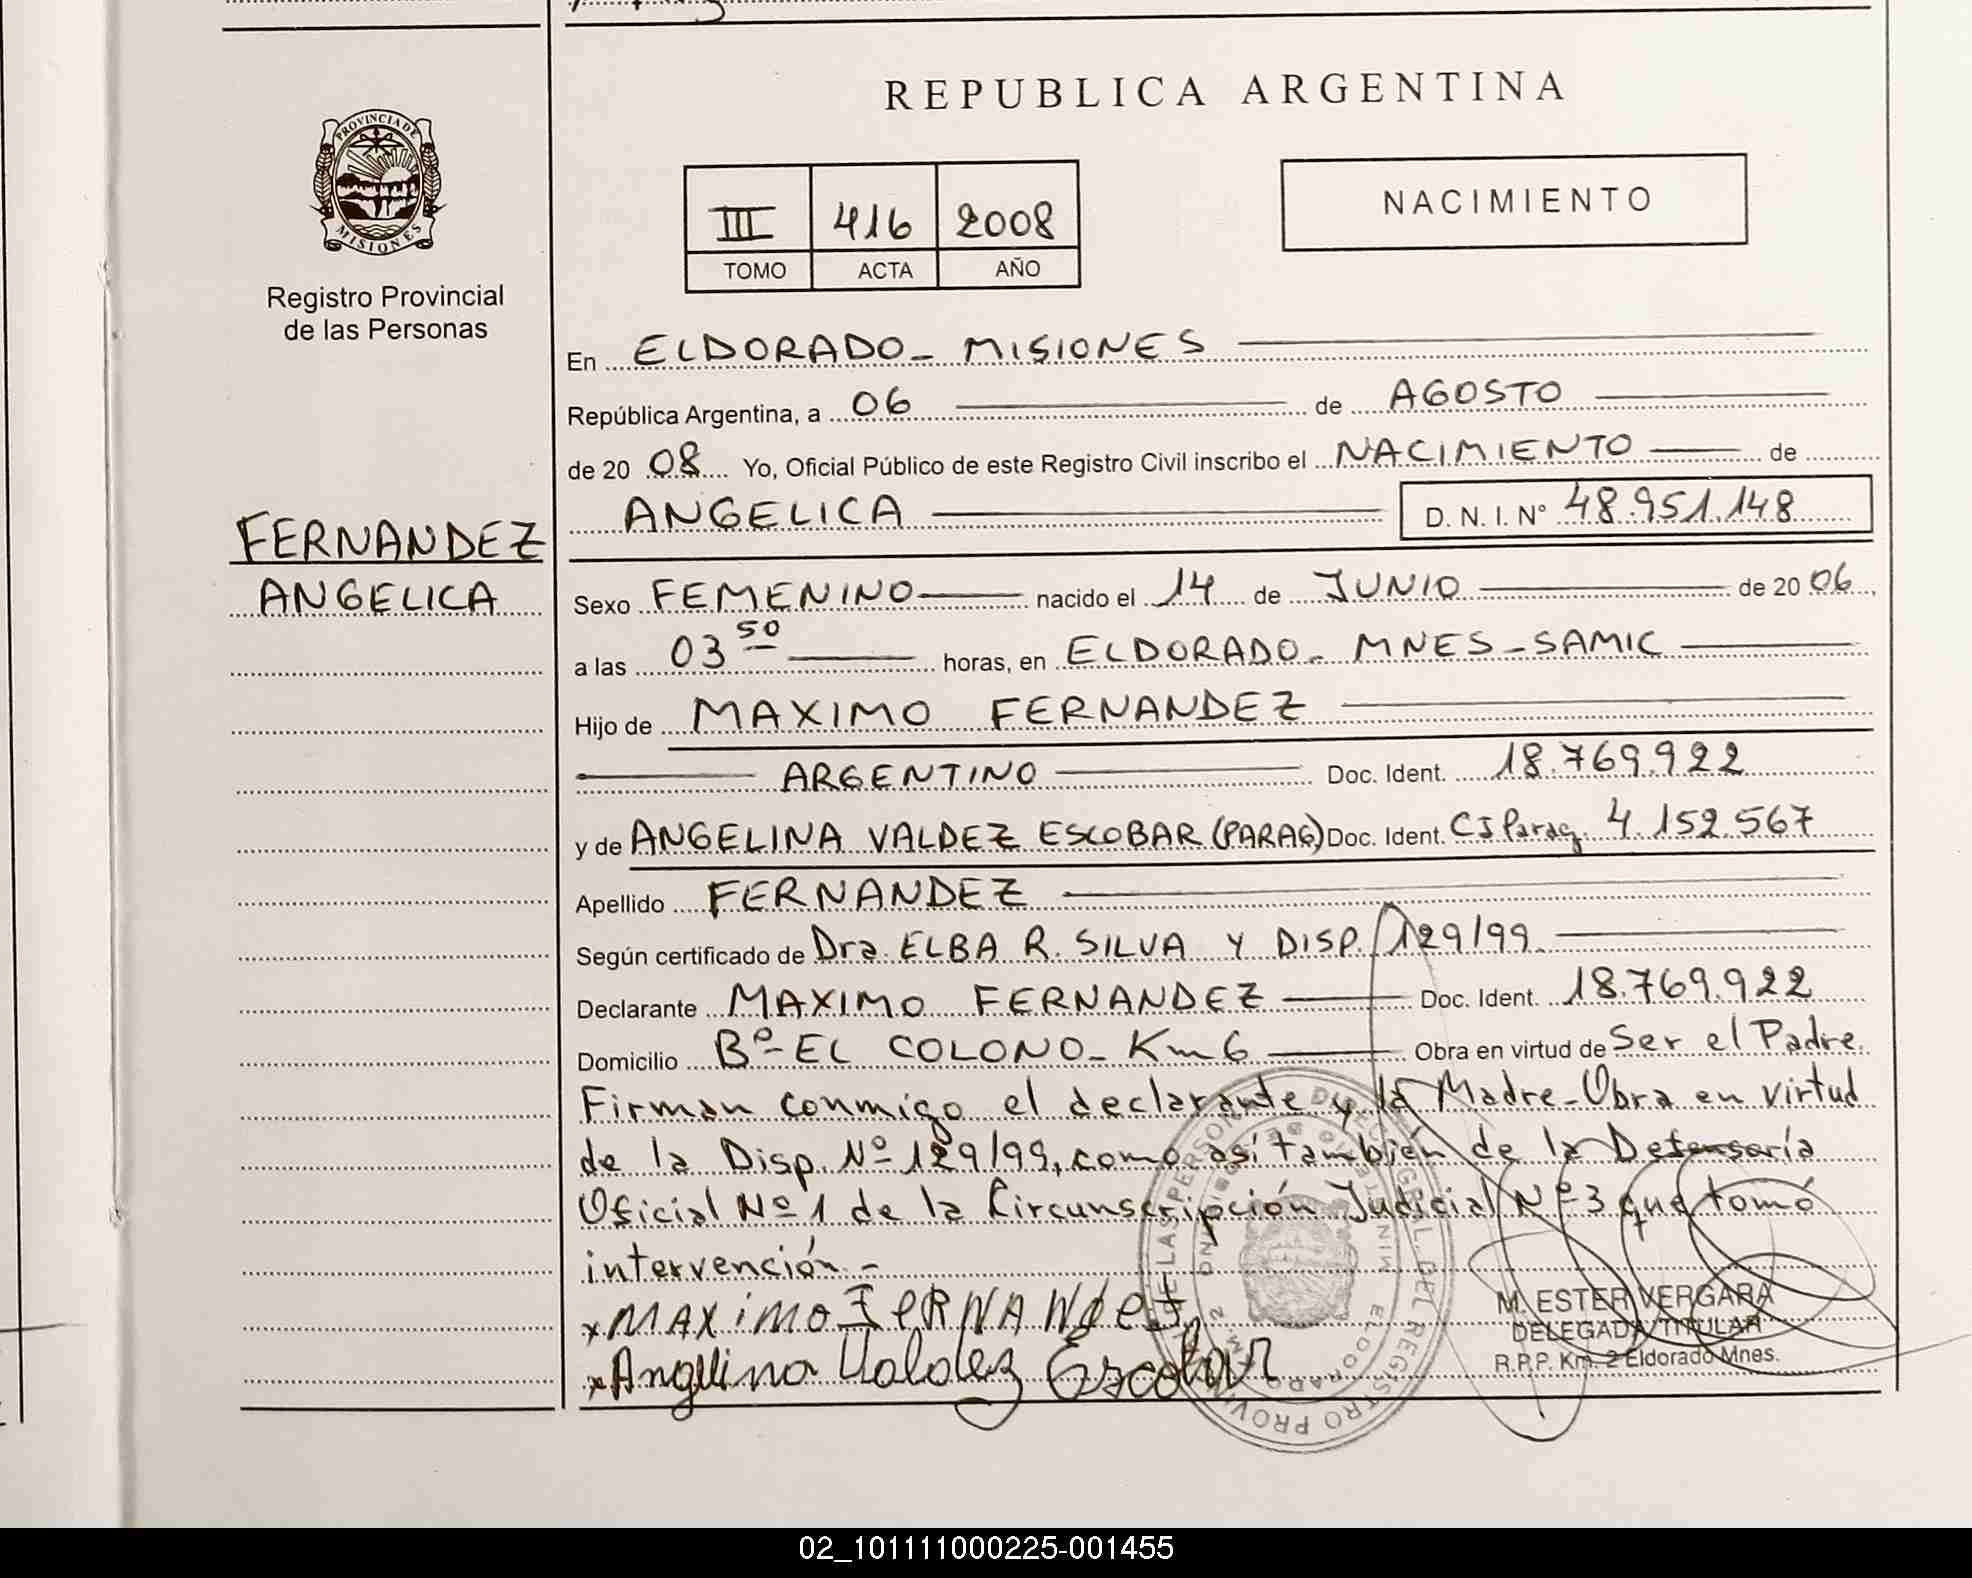 REPUBLICA ARGENTINA
PROVINCIA DE
MISIONES
Registro Provincial
de las Personas
III 416 2008
TOMO ACTA AÑO
NACIMIENTO
En ELDORADO - MISIONES
República Argentina, a 06 de AGOSTO
de 20 08 Yo, Oficial Público de este Registro Civil inscribo el NACIMIENTO de
ANGELICA D. N. I. N° 48.951.148
FERNANDEZ
ANGELICA
Sexo FEMENINO nacido el 14 de JUNIO de 20 06,
a las 03 50 horas, en ELDORADO - MNES - SAMIC
Hijo de MAXIMO FERNANDEZ
ARGENTINO Doc. Ident. 18.769.922
y de ANGELINA VALDEZ ESCOBAR (PARAG) Doc. Ident. CI Parag. 4.152.567
Apellido FERNANDEZ
Según certificado de Dra. ELBA R. SILVA Y DISP. 129/99
Declarante MAXIMO FERNANDEZ Doc. Ident. 18.769.922
Domicilio Bº - EL COLONO - Km 6 Obra en virtud de Ser el Padre
Firman conmigo el declarante y la Madre - Obra en virtud
de la Disp. Nº 129/99, como así también de la Defensoría
Oficial Nº 1 de la Circunscripción Judicial Nº 3 que tomó
intervención.-
x MAXIMO FERNANDEZ
x Angelina Valdez Escobar
M. ESTER VERGARA
DELEGADA TITULAR
R.P.P. Km. 2 Eldorado Mnes.
02_101111000225-001455